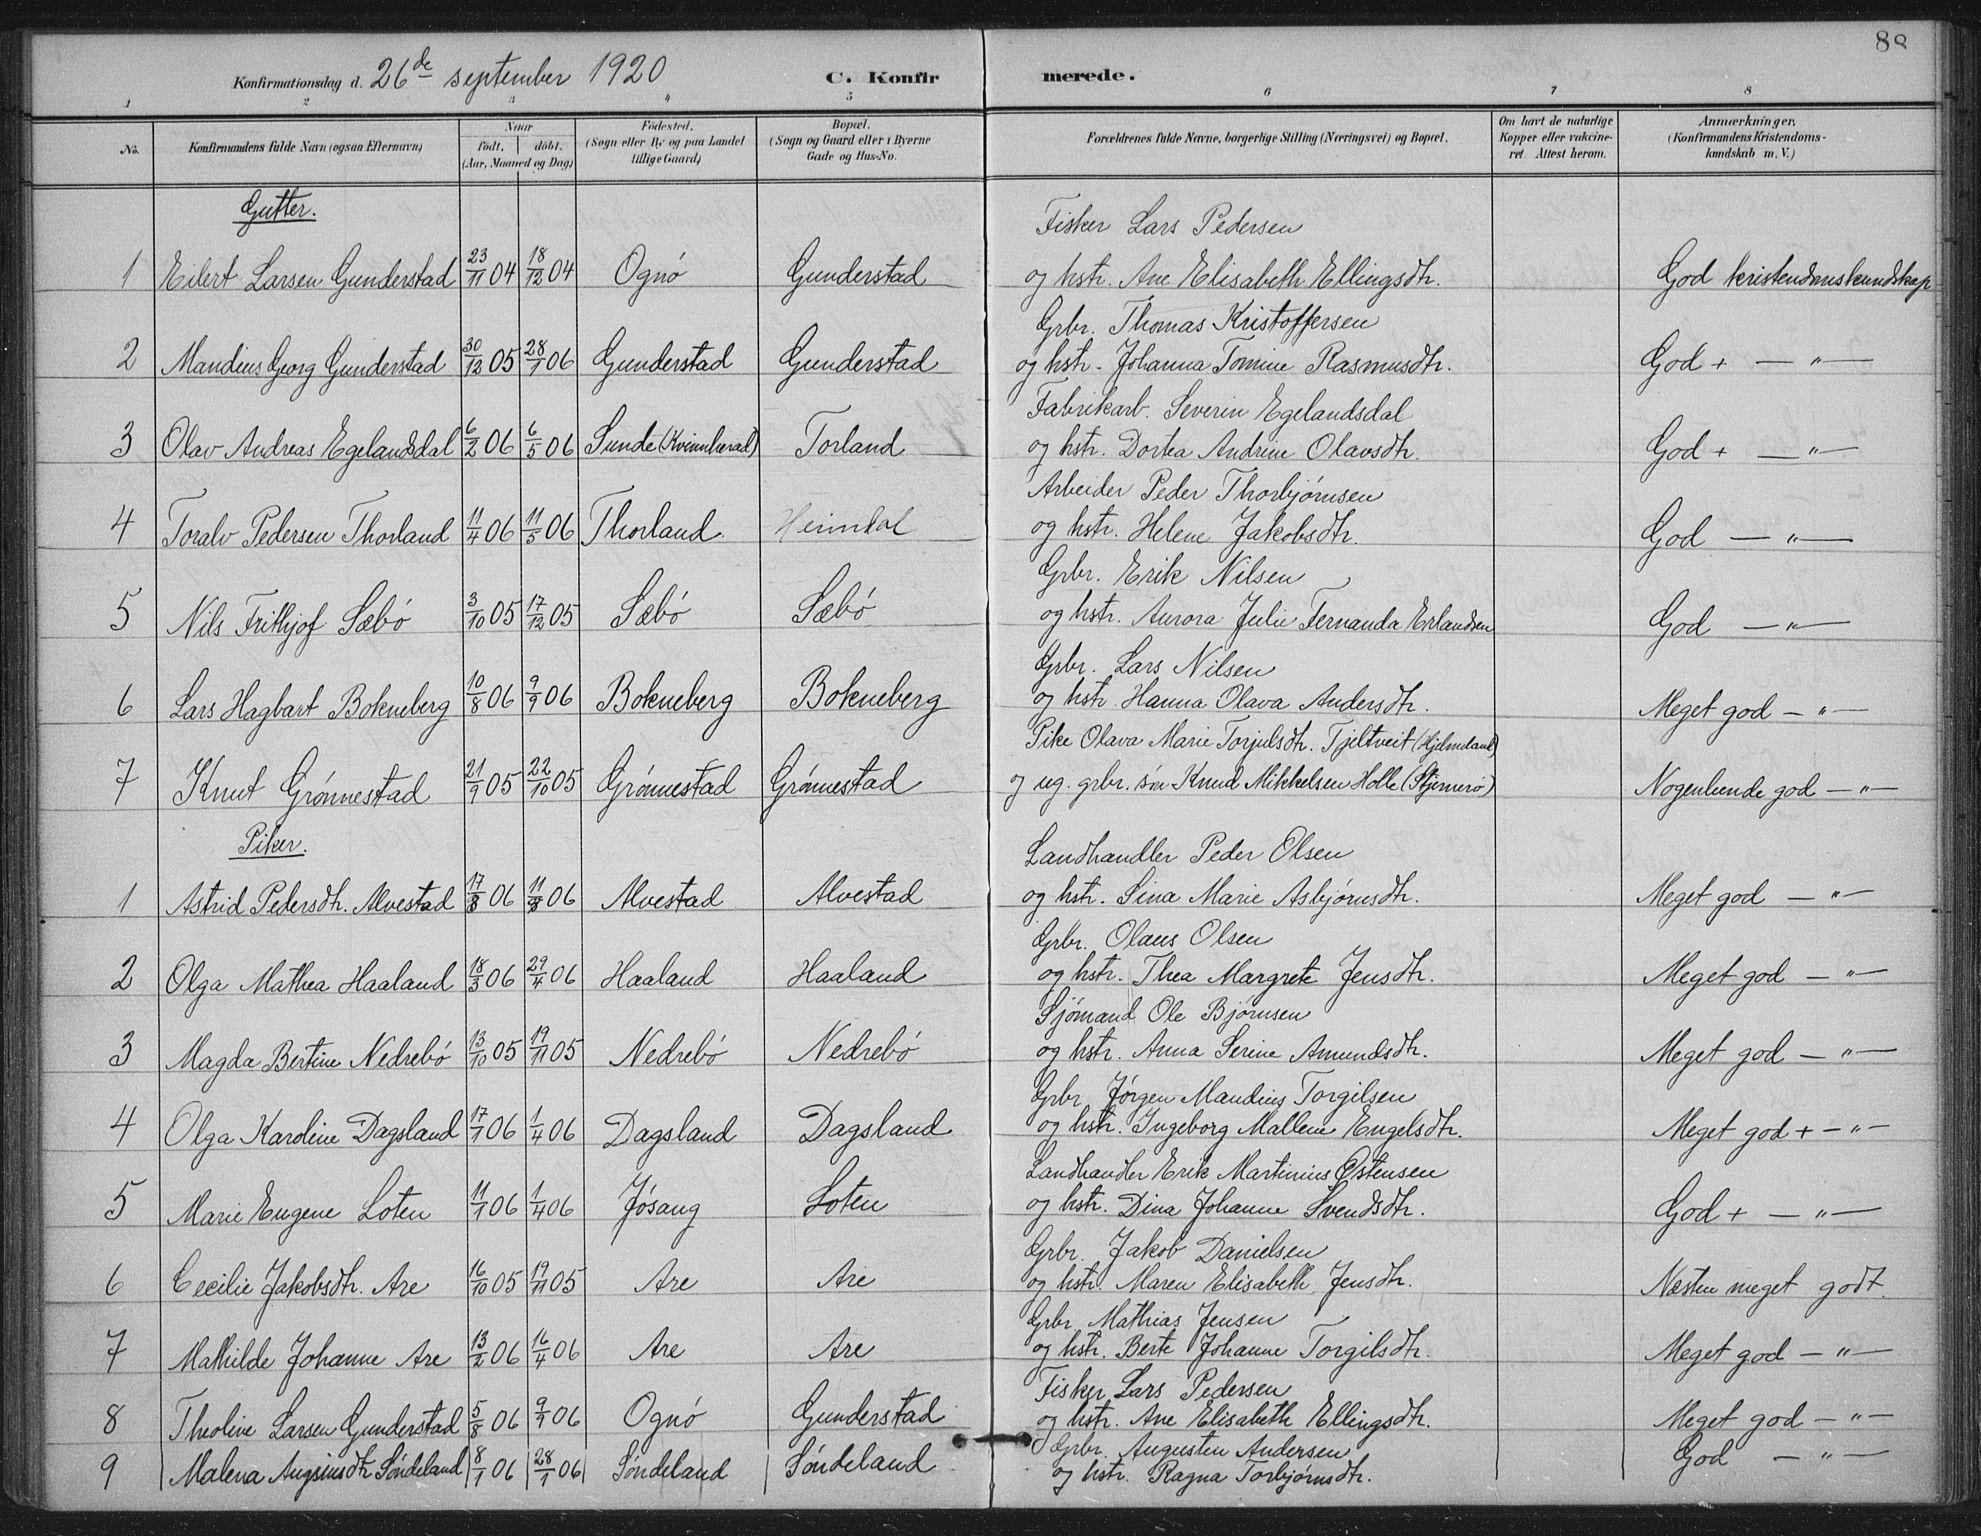 88
Konfirmationsdag d. 26de september 1920 C. Konfirmerede.
1 2 3 4 5 6 7 8
No. Konfirmandens fulde Navn (ogsaa Efternavn) Naar født. døbt. (Aar, Maaned og Dag) Fødested. (Sogn eller By og paa Landet tillige Gaard) Bopæl. (Sogn og Gaard eller i Byerne Gade og Hus-No. Forældrenes fulde Navne, borgerlige Stilling (Næringsvei) og Bopæl. Om havt de naturlige Kopper eller vakcineret. Attest herom. Anmærkninger. (Konfirmandens Kristendomskundskab m. V.)
Gutter.
Fisker Lars Pedersen
1 Eilert Larsen Gunderstad 23/11 04 18/12 04 Ognø Gunderstad og hstr. Ane Elisabeth Ellingsdtr. God kristendomskundskap
Grbr. Thomas Kristoffersen
2 Mandius Georg Gunderstad 30/12 05 28/1 06 Gunderstad Gunderstad og hstr. Johanna Tomine Rasmusdtr. God + — " —
Fabrikarb. Severin Egelandsdal
3 Olav Andreas Egelandsdal 6/2 06 6/5 06 Sunde (Kvinnherad) Torland og hstr. Dortea Andrine Olavsdtr. God + — " —
Arbeider Peder Thorbjørnsen
4 Toralv Pedersen Thorland 11/4 06 11/5 06 Thorland. Heimdal og hstr. Helene Jakobsdtr. God — " —
Grbr. Erik Nilsen
5 Nils Frithjof Sæbø 3/10 05 17/12 05 Sæbø Sæbø og hstr. Aurora Julie Fernanda Erlandsen God — " —
Grbr. Lars Nilsen
6 Lars Hagbart Bokneberg 10/8 06 9/9 06 Bokneberg Bokneberg og hstr. Hanna Olava Andersdtr. Meget god — " —
Pike Olava Marie Torjulsdtr. Tjeltveit (Hjelmeland)
7 Knut Grønnestad 21/9 05 22/10 05 Grønnestad Grønnestad og ug. grbr. søn Knud Mikkelsen Holle (Stjernerø) Nogenlunde god — " —
Piker.
Landhandler Peder Olsen
1 Astrid Pedersdtr. Alvestad 17/8 06 11/ 06 Alvestad Alvestad og hstr. Sina Marie Asbjørnsdtr. Meget god — " —
Grbr. Olaus Olsen
2 Olga Mathea Haaland 18/3 06 29/4 06 Haaland Haaland og hstr. Thea Margrete Jensdtr. Meget god — " —
Sjømand Ole Bjørnsen
3 Magda Bertine Nedrebø 13/10 05 19/11 05 Nedrebø Nedrebø og hstr. Anna Serine Amundsdtr. Meget god — " —
Grbr. Jørgen Mandius Torgilsen
4 Olga Karoline Dagsland 17/1 06 1/4 06 Dagsland Dagsland og hstr. Ingeborg Mallene Engelsdtr. Meget god + — " —
Landhandler Erik Martinius Østensen
5 Marie Eugene Loten 11/1 06 1/4 06 Jøsang Loten og hstr. Dina Johanne Svendsdtr. God + — " —
Grbr. Jakob Danielsen
6 Cecilie Jakobsdtr. Are 16/10 05 19/11 05 Are Are og hstr. Maren Elisabeth Jensdtr. Næsten meget godt.
Grbr. Mathias Jensen
7 Mathilde Johanne Are 13/2 06 16/4 06 Are Are og hstr. Berte Johanne Torgilsdtr. Meget god — " —
Fisker Lars Pedersen
8 Theoline Larsen Gunderstad 5/8 06 9/9 06 Ognø Gunderstad og hstr. Ane Elisabeth Ellingsdtr. Meget god — " —
Grbr. Augusten Andersen
9 Malena Søndeland 8/1 06 28/1 06 Søndeland Søndeland og hstr. Ragna Torbjørnsdtr. God — " —